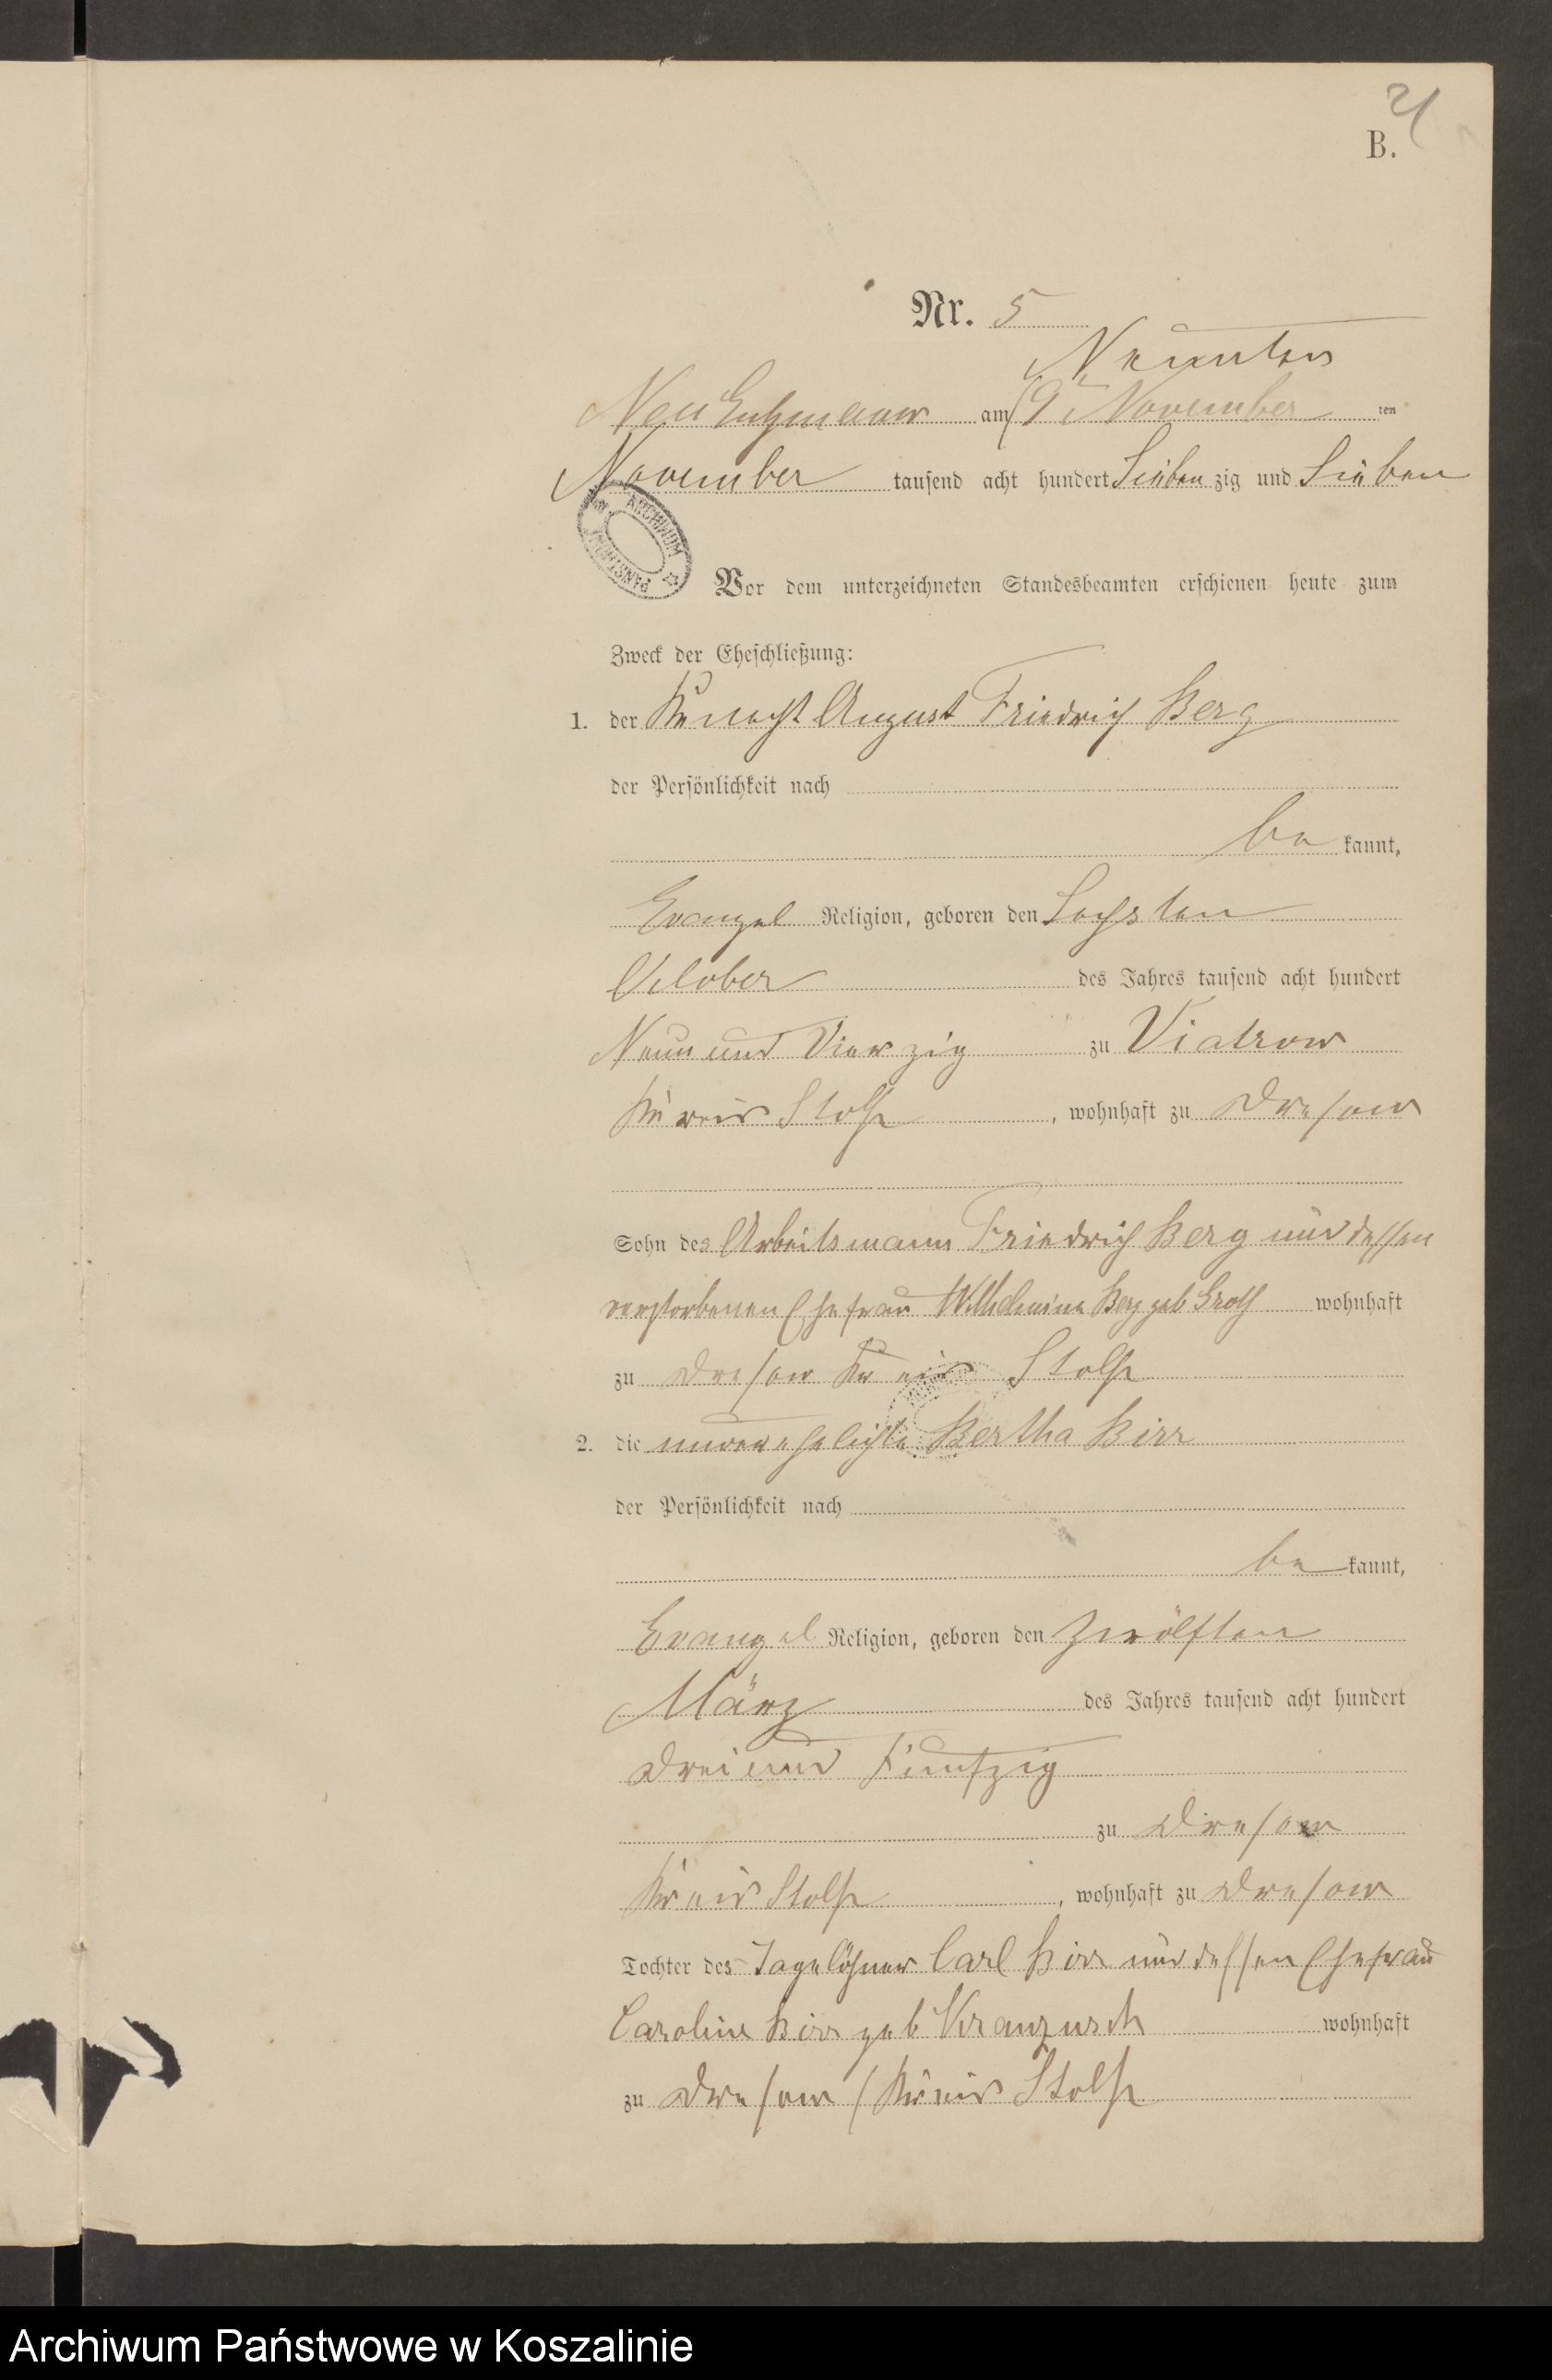 21
B.
Nr. 5
Neunten
Neu Gutzmerow am (9ten November ten
November tausend acht hundert Sieben zig und Sieben
ARCHIWUM PAŃSTWOWE W
Vor dem unterzeichneten Standesbeamten erschienen heute zum
Zweck der Eheschließung:
1. der Knecht August Friedrich Berg
der Persönlichkeit nach
be kannt,
Evangel Religion, geboren den Sechsten
October des Jahres tausend acht hundert
Neun und Vierzig zu Viatrow
Kreis Stolp, wohnhaft zu Dresow
Sohn des Arbeitsmann Friedrich Berg und dessen
verstorbenen Ehefrau Wilhelmine Berg geb Groth wohnhaft
zu Dresow Kreis Stolp
2. die unverehelichte Bertha Birr
der Persönlichkeit nach
be kannt,
Evangel Religion, geboren den Zwölften
März des Jahres tausend acht hundert
Drei und Fünfzig
zu Dresow
Kreis Stolp, wohnhaft zu Dresow
Tochter des Tagelöhner Carl Birr und dessen Ehefrau
Caroline Birr geb Kranzusch wohnhaft
zu Dresow / Kreis Stolp
Archiwum Państwowe w Koszalinie